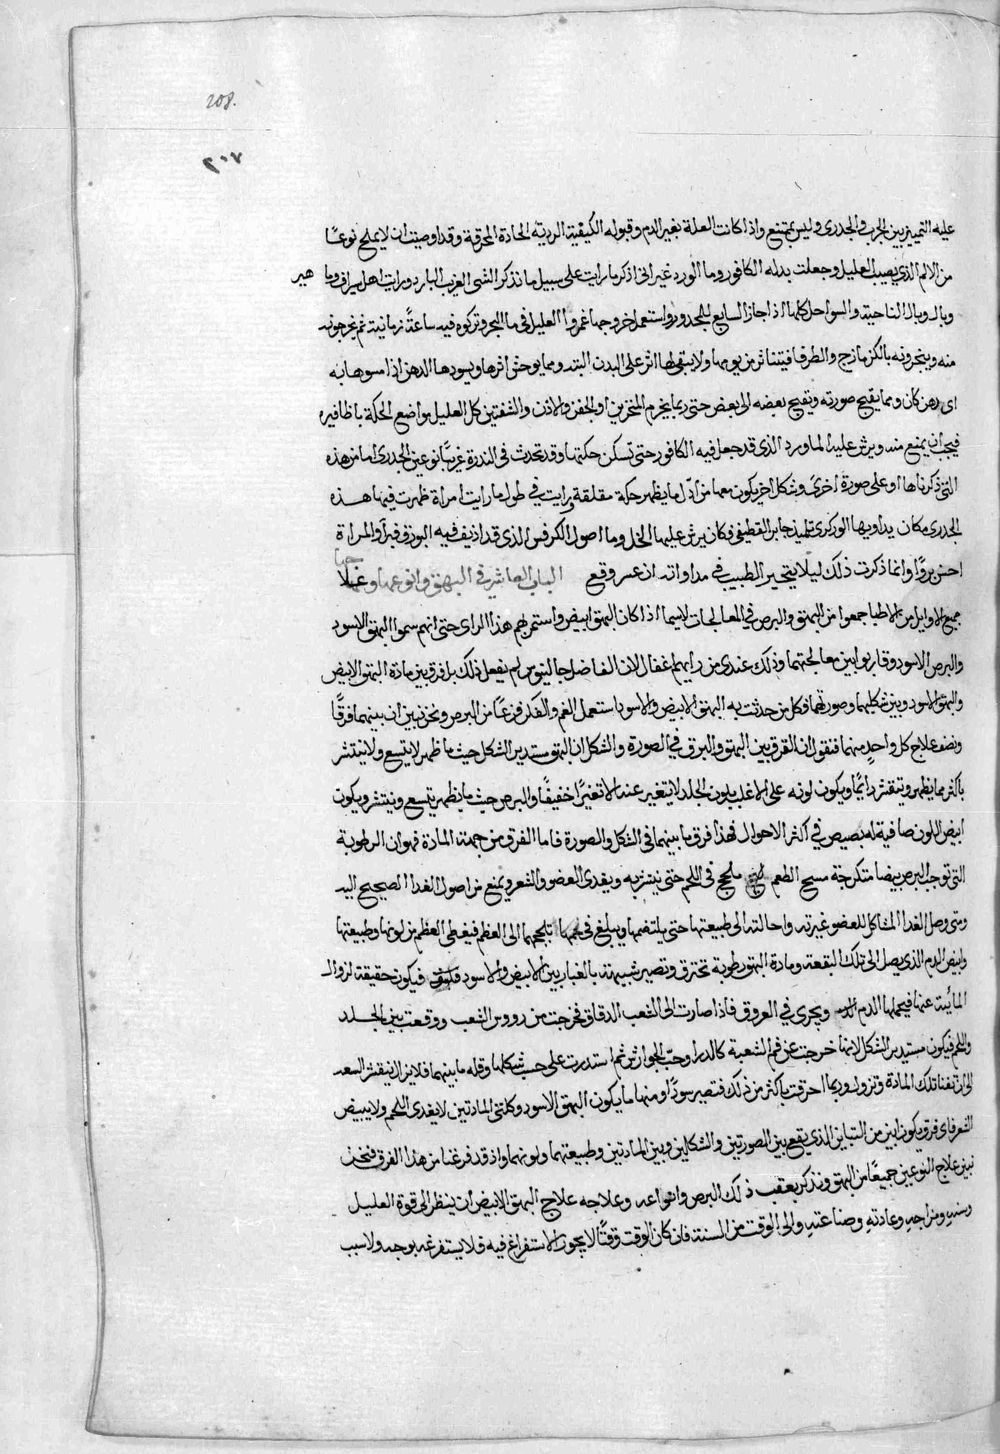 208.
٢٠٧
عليه التمييز بين الجرب والجدرى وليس يمتنع واذا كانت العلة بغير الدم وقبوله الكيفية الردية الحادة المحرقة وقد اوصيت ان لا يملح نوعًا
من الالم الذي يصيب العليل وجعلت بدله الكافور وما الورد غير انى اذكر ما رايت على سبيل ما نذكر الشى الغريب البارد ورايت اهل سيراف وما
هير
وبال الناحية والسواحل كلها اذا جاز السابع للمجدور واستعمل خروجها غمروا العليل فى ما البحر وتركوه فيه ساعةً زمانية ثم يخرجونه
منه ويبخرونه بالكزمازج والطرفا فيتناثر من يومها ولا يبقى لها اثر على البدن البتة ومما يوحش اثرها ويسودها الدهن اذا مسوها به
اى دهن كان ومما يقبح صورته ويقبح بعضه الى بعض حتى ربما يخرم المنخرين او الجفن والاذن والشفتين كل العليل مواضع الحكة باظافيره
فيجب ان يمنع منه ويرش عليه الماورد الذى قد جعل فيه الكافور حتى تسكن حكتها وقد تحدث فى الندرة غريبًا نوعين الجدرى اما من هذه
التى ذكرناها او على صورة اخرى وشكل اخر يكون معها من اول ما يظهر حكة مقلقة ورايت فى طول ما رايت امراة ظهرت فيها هذه
الجدرى مكان يداويها الوركرى تلميذ جابر القطيفى فكان يرش عليها الخل وما اصول الكرفس الذى قد اذيف فيه البورق فبرأ والمراة
احسن بروًا وانما ذكرت ذلك ليلا يتحير الطبيب فى مداواته ان عسر وقع الباب العاشر فى البهق وانوعها وعلاجها
جميع الاوايل من الاطبا جمعوا من البهق والبرص فى المعالجات لاسيما اذا كان البهق ابيض واستمر بهم هذا الراى حتى انهم سموا البهق الاسود
والبرص الاسود وقاربوا بين معالجتهما وذلك عندى من رايهم اغفال لان الفاضل جالينوس لم يفعل ذلك بل فرق بين مادة البهق الابيض
والبهق الاسود وبين شكليهما وصورتهما فكل من حدثت به البهق الابيض والاسود استعمل الغم والفكر فزعًا من البرص ونحن نبين ان بينهما فرقًا
ونصف علاج كل واحدٍ منهما فنقول ان الفرق بين البهق والبرق فى الصورة والشكل ان البهق مستدير الشكل حيث ما ظهر لا يتسع ولا ينتشر
باكثر مما يظهر ويتقشر دائمًا ويكون لونه على الاغلب بلون الجلد لا يتغير عنه الا تغيرًا خفيفًا والبرص حيث ما يظهر يتسع وينتشر ويكون
ابيض اللون صافية له بصيص فى اكثر الاحوال فهذا فرق ما بينهما فى الشكل والصورة فاما الفرق من جهة المادة فهو ان الرطوبة
التى توجب البرص بيضا متكرجة مسيخ الطعم ملحج فى اللحم حتى يتشربه ويغدى العضو والشعر ويمنع من اصول الغدا الصحيح اليه
ومتى وصل الغدا المشاكل للعضو غيرته واحالته الى طبيعتها حتى يلتقمها ويبلغ فى تلحجها الى العظم فيغطى العظم من لونها وطبيعتها
وابيض الدم الذى يصل الى تلك البقعة ومادة البهق رطوبة تحترق وتصير شبيهة بالغبار بين الابيض والاسود فيكون حقيقة لزوال
المائية عنها فيحملها الدم ويجرى فى العروق فاذا صارت الى الشعب الدقاق فخرجت من رووس الشعب ووقعت بين الجلد
واللحم فيكون مستدير الشكل لانها خرجت عن فم الشعبة كالدرا وحب الجوارش ثم استدرت على حسب شكلها وقلة ما بينهما فلا يزال يتقشر الشعر
الى ان تفنا تلك المادة وتزول وربما احرقت باكثر من ذلك فتصير سودًا ومنها ما يكون البهق الاسود وكلتى المادتين لا يغدى اللحم ولا يبيض
الشعر فاى فرق يكون ابين من التباين الذى يقع بين الصورتين والشكلين وبين المادتين وطبيعتهما ولونهما واذ قد فرغنا من هذا الفرق فنحن
نبين علاج النوعين جميعًا من البهق ونذكر بعقب ذلك البرص وانواعه وعلاجه علاج البهق الابيض ان ينظر الى قوة العليل
وسنه ومزاجه وعادته وصناعته والى الوقت من السنة فان كان الوقت وقتًا لا يجوز الاستفراغ فيه فلا يستفرغه بوجه ولا سبب